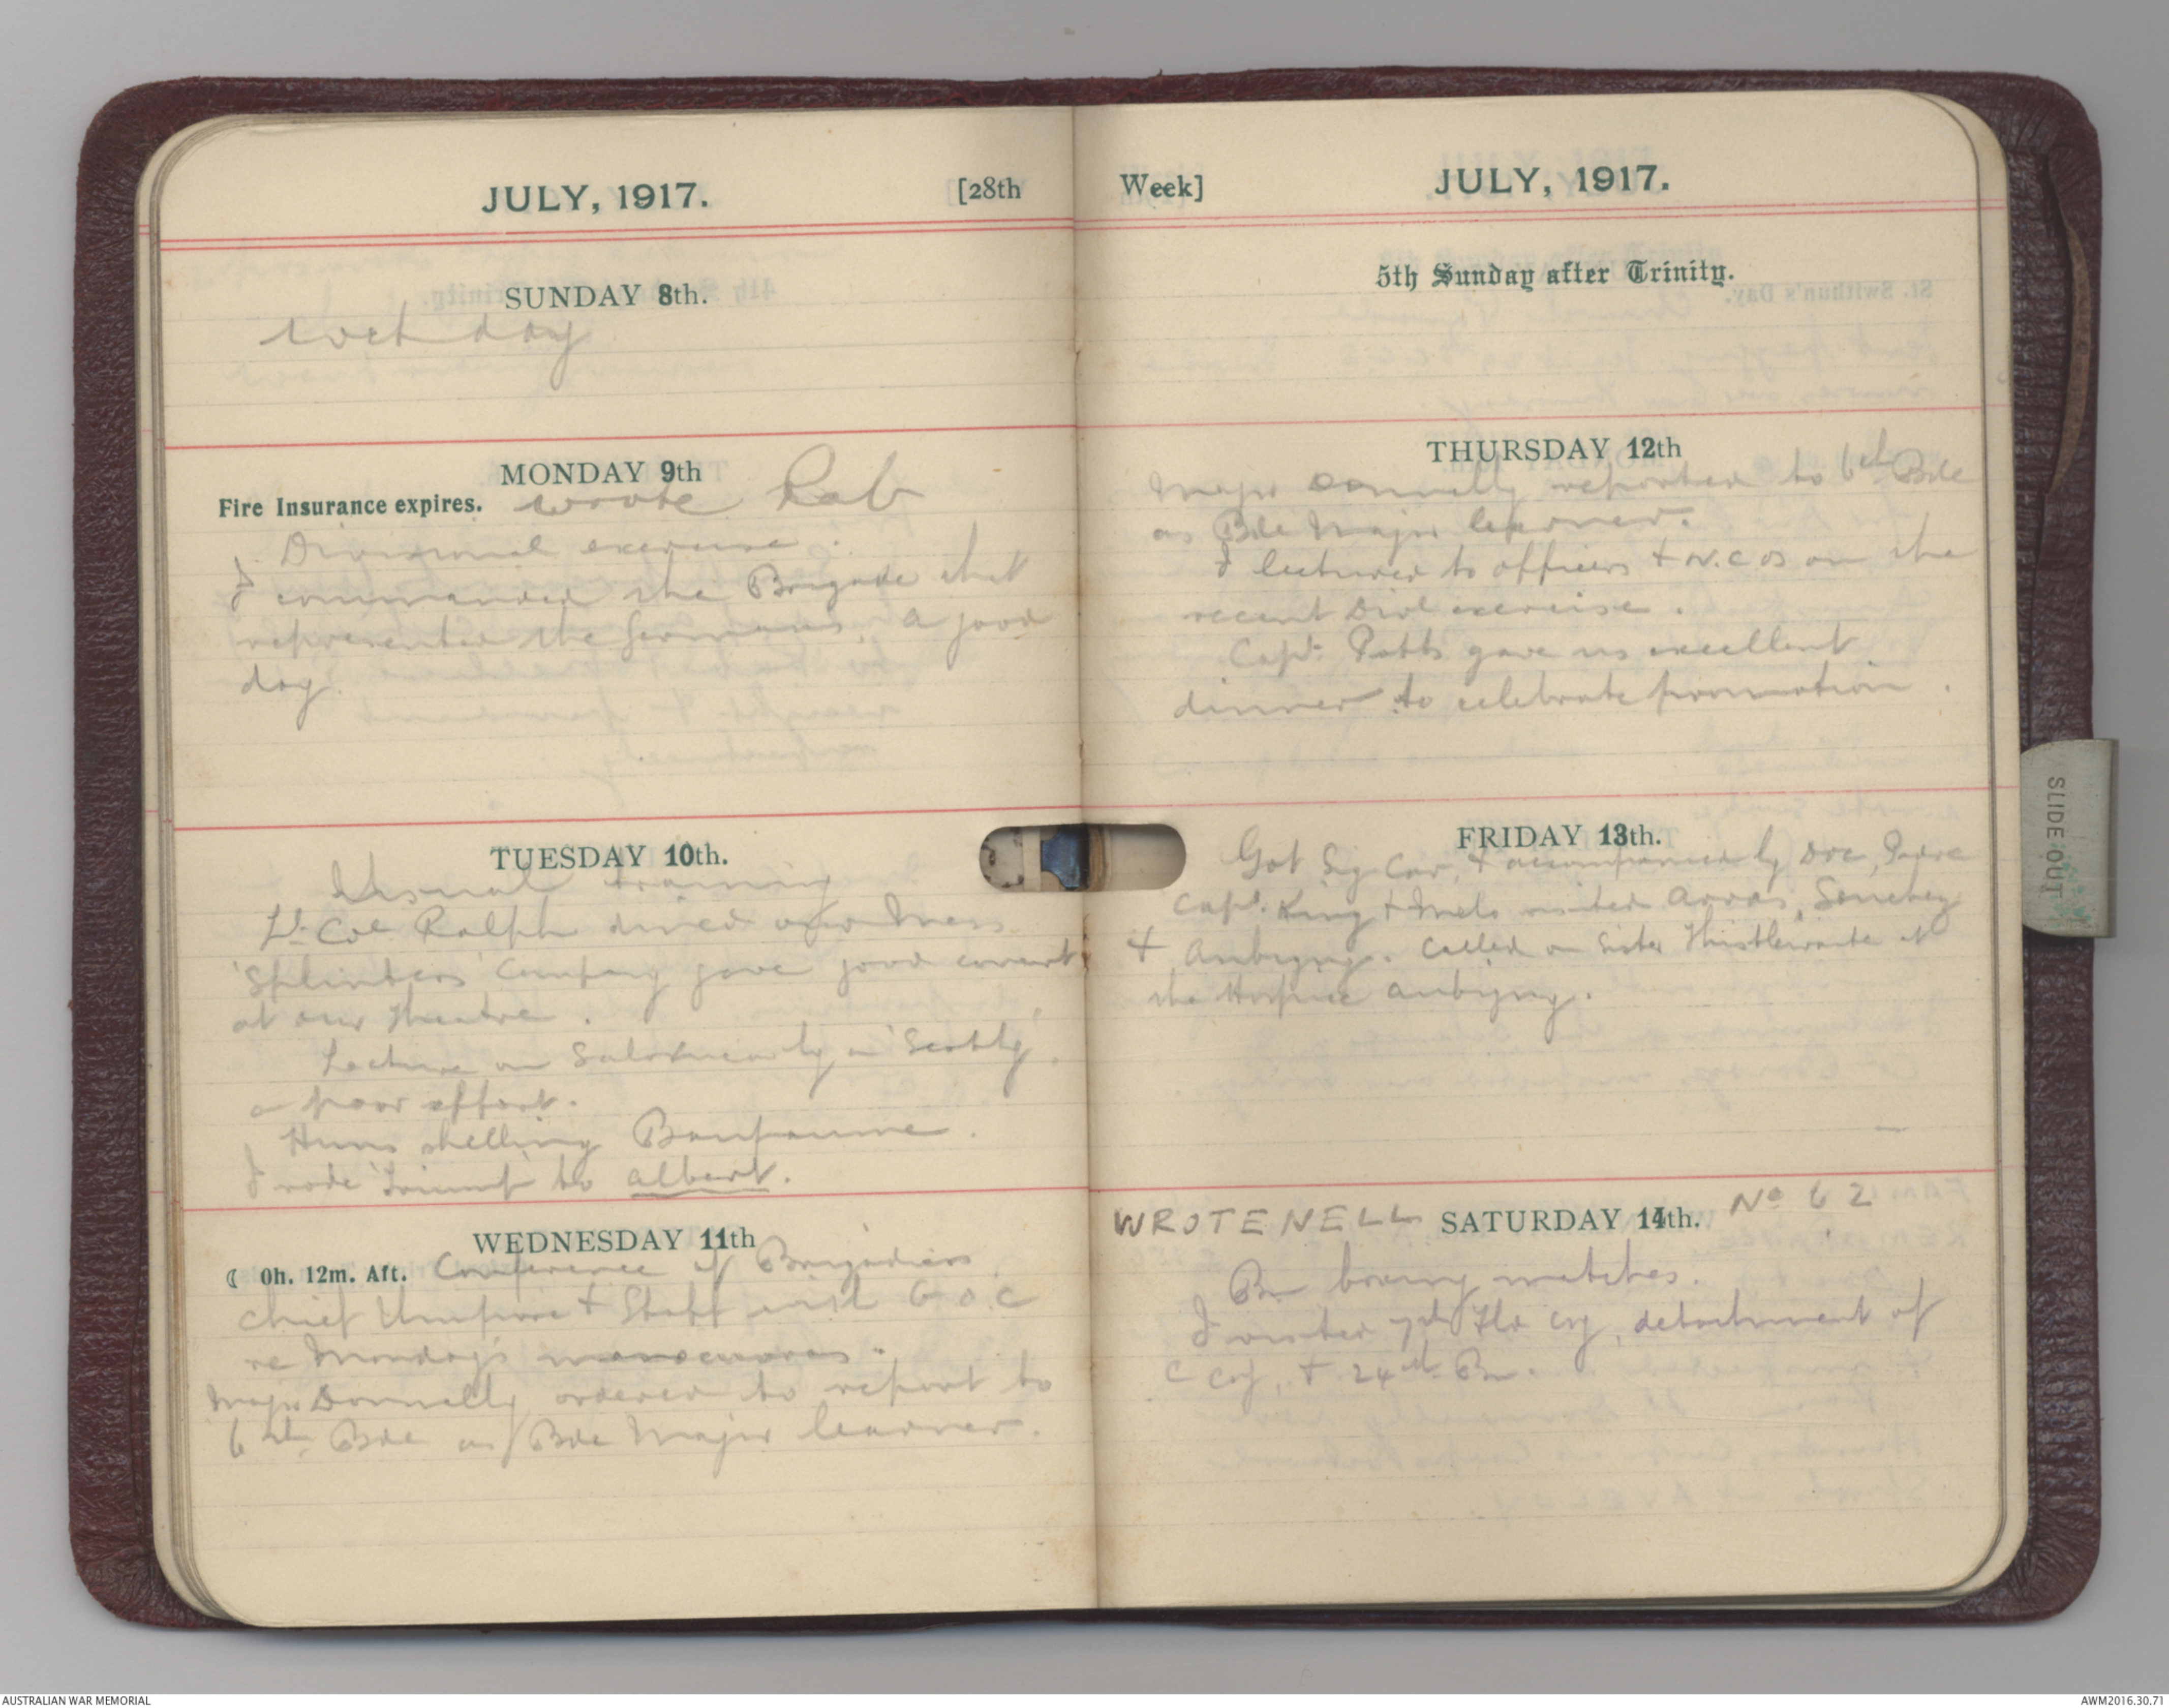 JULY, 1917. [28th
SUNDAY 8th.
wet day
MONDAY 9th
Fire Insurance expires. wrote Rob
Divisional exercise.
I commanded the Brigade that
represented the Germans. A good
day.
TUESDAY 10th.
Usual training
Lt Col Ralph dined at our Mess.
'Splinters' Company gave good concert
at our theatre.
Lecture on by a 'Scotty'.
a poor effort.
Huns shelling Baupaume.
I rode to Albert.
WEDNESDAY 11th
0h. 12m. Aft. Conference of Brigadiers,
Chief Umpire + Staff with G.O.C
re Monday's manoeuvres.
Major Donnelly ordered to report to
6th Bde as Bde Major learner.
Week] JULY, 1917.
5th Sunday after Trinity.
THURSDAY 12th
Major Donnelly reported to 6th Bde
as Bde Major learner.
I lectured to officers + N.C.Os on the
recent Divl exercise.
Capt. Potts gave us excellent
dinner to celebrate promotion.
FRIDAY 13th.
Got Sig Car, + accompanied by Doc, Padre
Capt. King + visited Arras, Souchez
+ Aubigny. Called on Sister Thistlewaite at
the Hospice Aubigny.
WROTE NELL SATURDAY 14th. No 62
Bn boxing matches.
I visited 7th Fld Coy, detachment of
C Coy, + 24th Bn.
SLIDE OUT
AUSTRALIAN WAR MEMORIAL
AWM2016.30.71